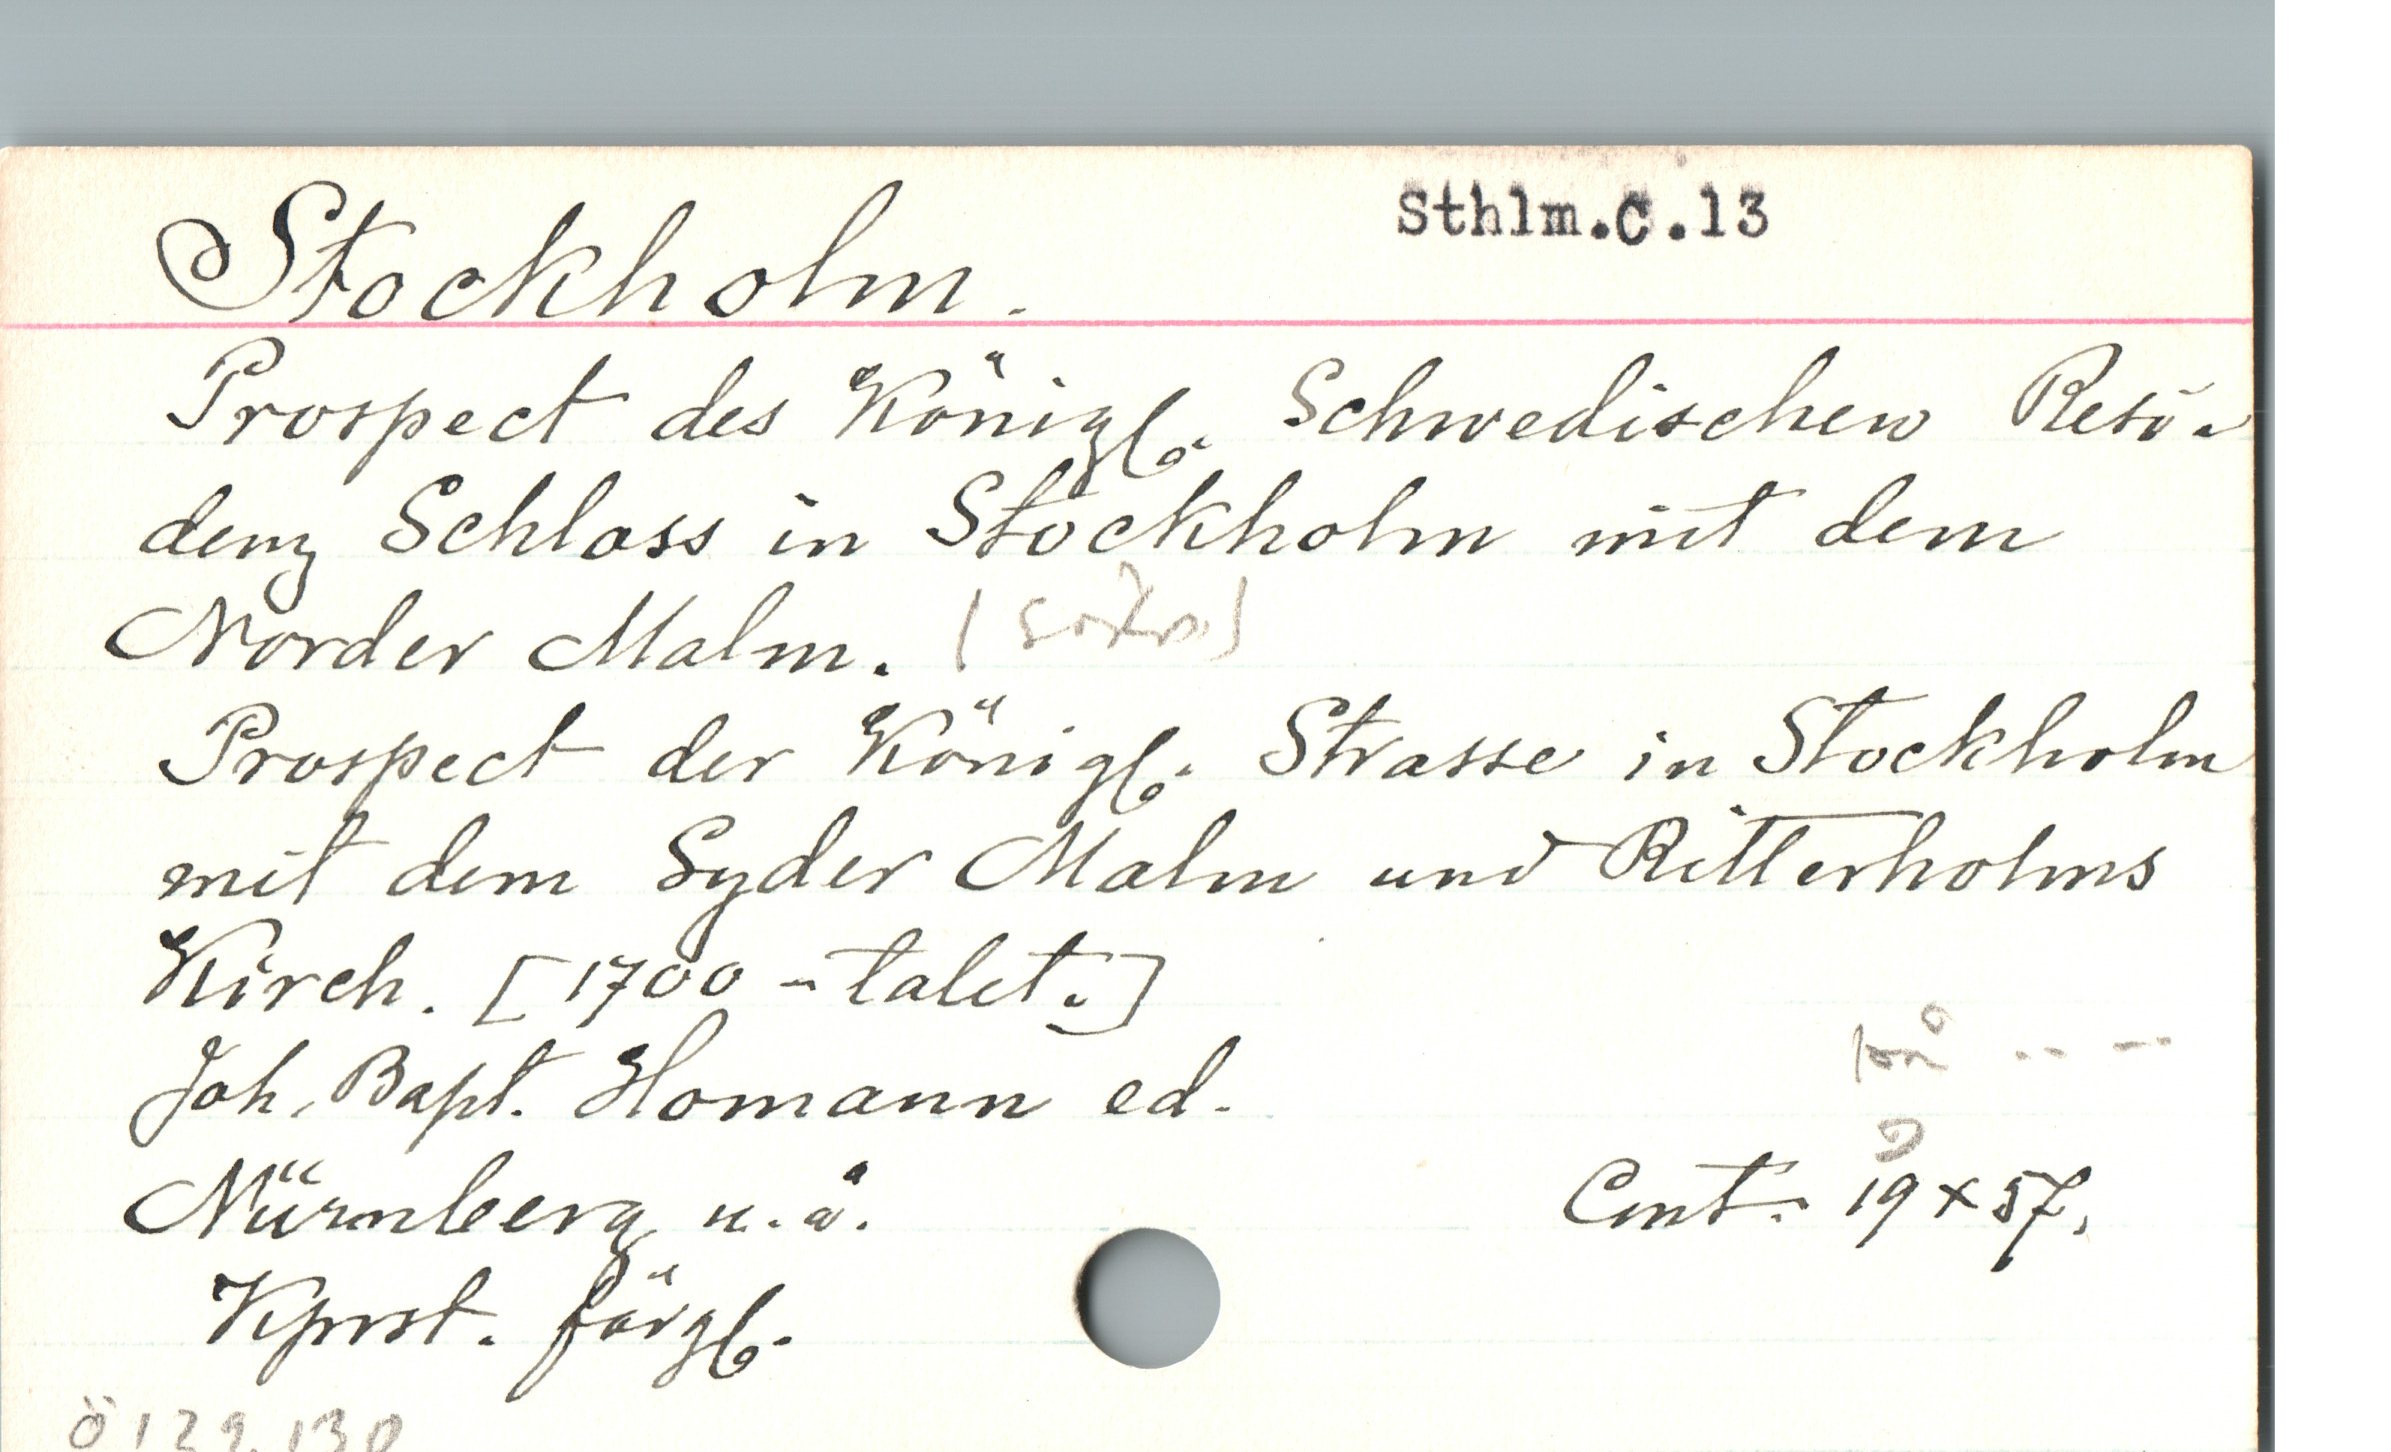 Sthlm.C.13
Stockholm.
Prospect des Königl. Schwedischen Resi-
denz Schloss in Stockholm mit dem
Norder Malm.
Prospect der Königl. Strasse in Stockholm
mit dem Syder Malm und Ritterholms
Kirch. [1700-talet.]
Joh. Bapt. Homann ed.
Nürnberg u. å.
Cent. 19 x 57.
Kprst. färgl.
Ö 129, 130